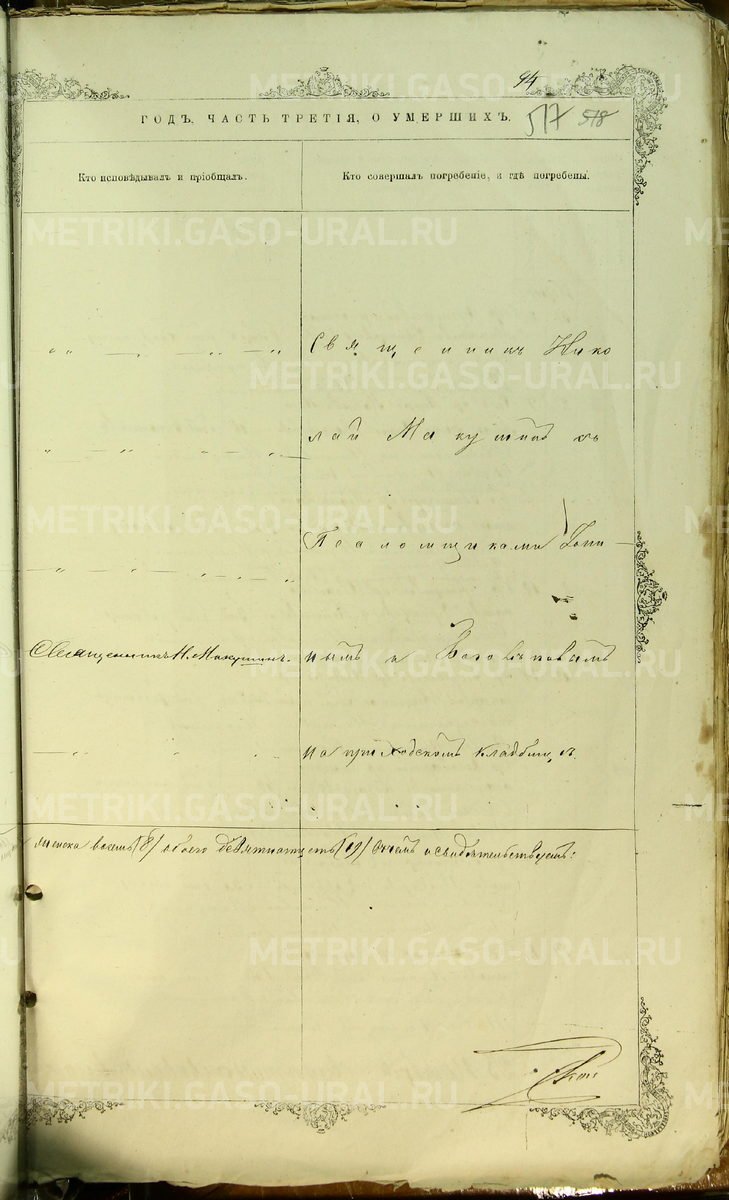 94
ГОДЪ. ЧАСТЬ ТРЕТІЯ, О УМЕРШИХЪ.
517 518
Кто исповѣдывалъ и пріобщалъ.
Кто совершалъ погребеніе, и гдѣ погребены.
Священникъ Нико
лай Макушинъ съ
Псаломщиками
Священникъ Н. Макушинъ.
нымъ и
на приходскомъ кладбищѣ.
женска восемь (8) обоего девятнатцеть (19) въ чемъ и свидѣтельствуемъ:
METRIKI.GASO-URAL.RU